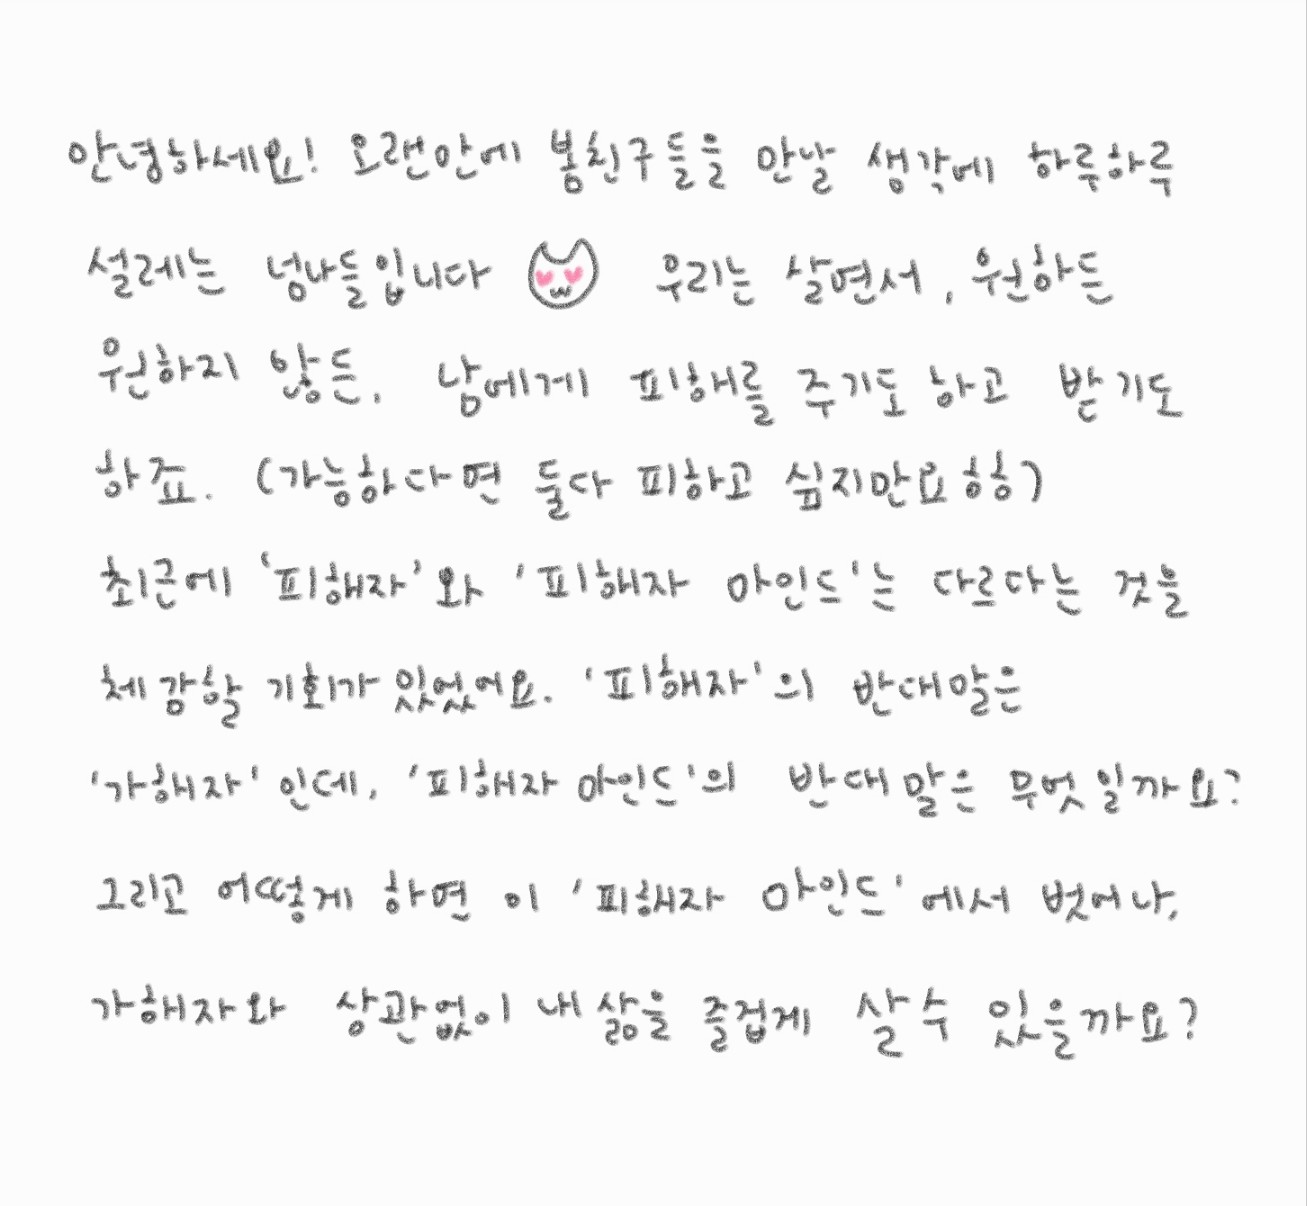 안녕하세요! 오랜만에 봄친구들을 만날 생각에 하루하루
설레는 넘나들입니다 우리는 살면서, 원하든
원하지 않든, 남에게 피해를 주기도 하고 받기도
하죠. (가능하다면 둘다 피하고 싶지만요 힝힝)
최근에 '피해자'와 '피해자 마인드'는 다르다는 것을
체감할 기회가 있었어요. '피해자'의 반대말은
'가해자'인데, '피해자 마인드'의 반대말은 무엇일까요?
그리고 어떻게 하면 이 '피해자 마인드'에서 벗어나,
가해자와 상관없이 내 삶을 즐겁게 살 수 있을까요?